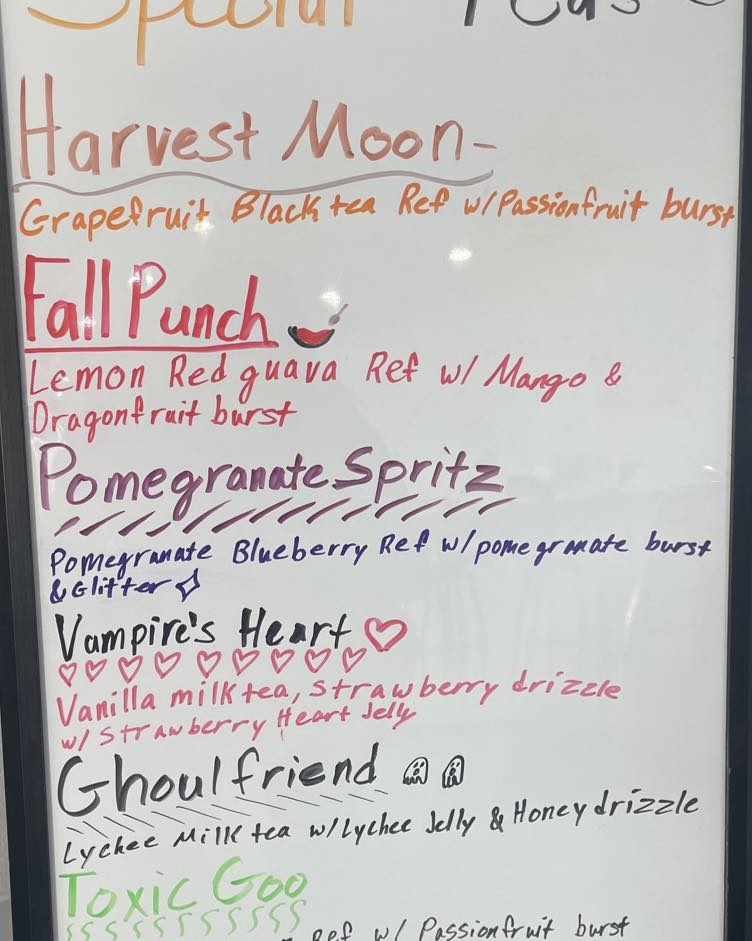 Special Teas
Harvest Moon-
Grapefruit Black tea Ref w/Passionfruit burst
Fall Punch
Lemon Red guava Ref w/ Mango &
Dragonfruit burst
Pomegranate Spritz
Pomegranate Blueberry Ref w/pomegranate burst
& Glitter
Vampire's Heart
Vanilla milk tea, strawberry drizzle
w/ Strawberry Heart Jelly
Ghoulfriend
Lychee Milk tea w/Lychee Jelly & Honey drizzle
Toxic Goo
Ref w/ Passionfruit burst